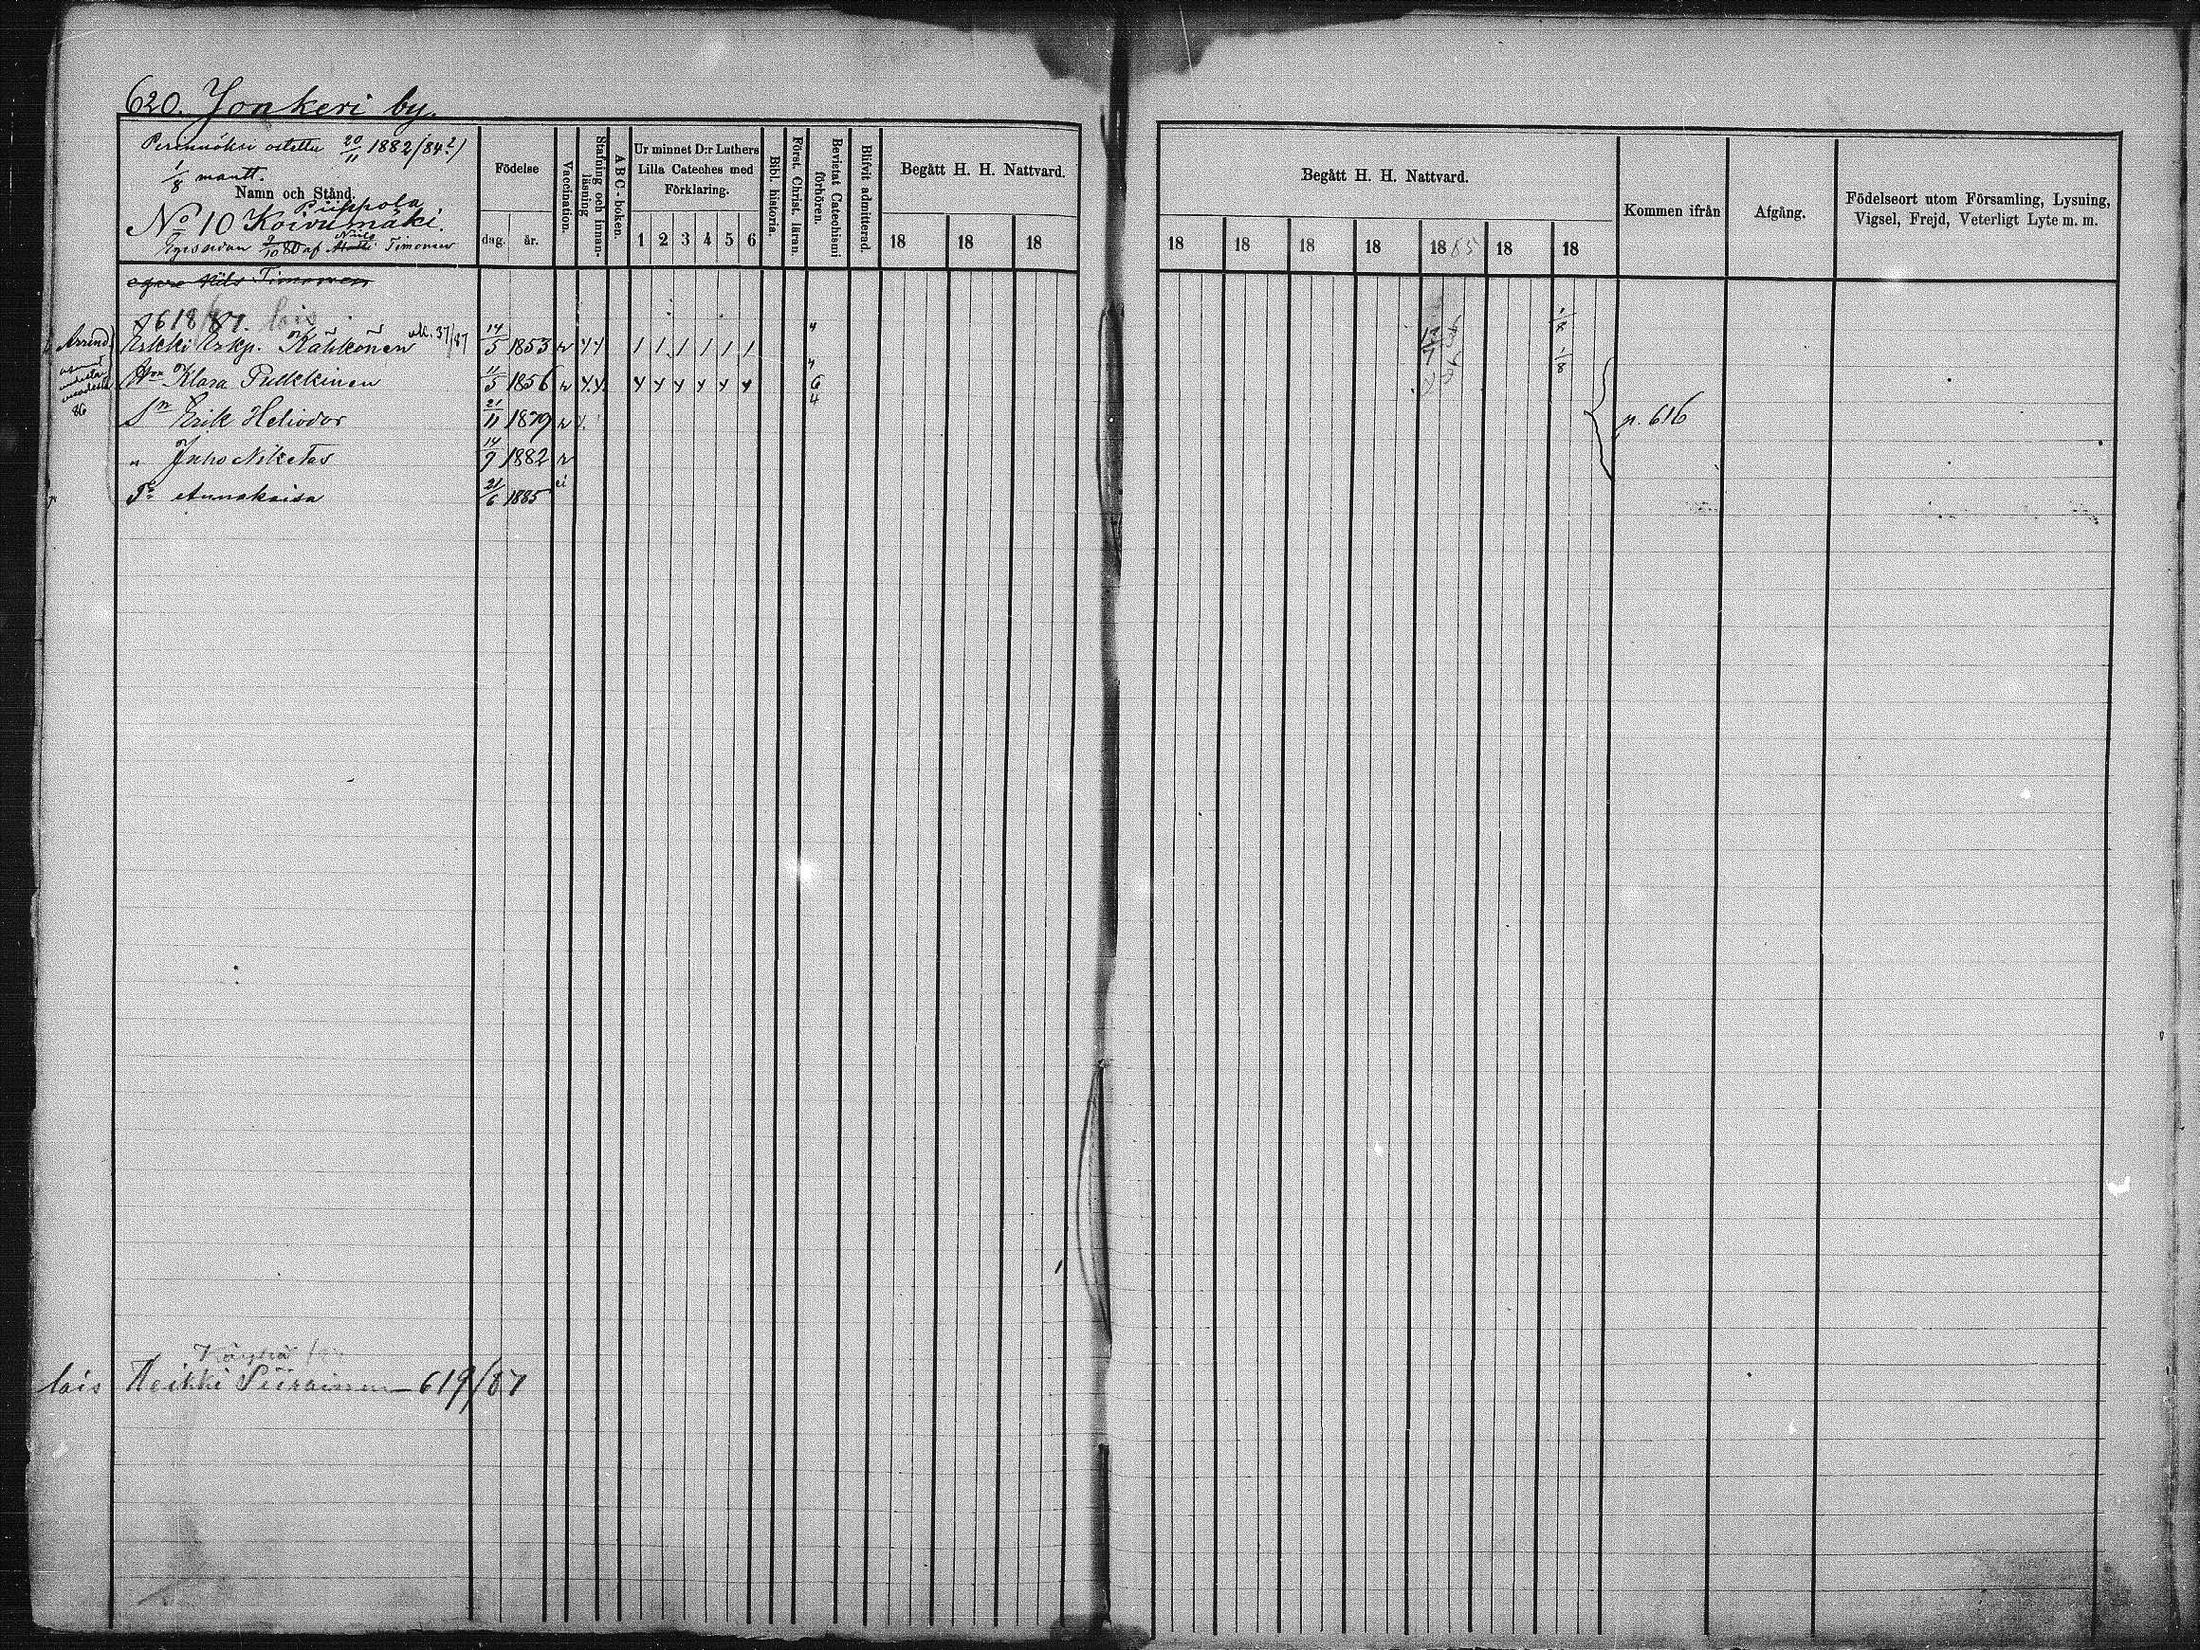 620. Jonkeri by.
Perinnöksi ostettu 20/11 1882 (84?)
1/8 mantt.
Namn och Stånd.
Piippola
No 10 Koivumäki.
2/10 80 af Nils Matti Timonen
egare Nils Timonen
Födelse
dag. år.
Vaccination.
Stafning och innan-läsning
ABC-boken.
Ur minnet D:r Luthers Lilla Cateches med Förklaring.
1 2 3 4 5 6
Bibl. historia.
Först. Christ. läran.
Bevistat Catechismi förhören.
Blifvit admitterad.
Begått H. H. Nattvard.
18 18 18
Begått H. H. Nattvard.
18 18 18 18 1885 18 18
Kommen ifrån
Afgång.
Födelseort utom Församling, Lysning, Vigsel, Frejd, Veterligt Lyte m. m.
618/87. lais
Arrend. Erkki Erkp. Kähkönen 37/87 14/5 1853 r / / / / / / 1/8
Hru Klara Pulkkinen 11/5 1856 r 6 1/8
86
4
Sn Erik Heliodor 21/11 1879 r p. 616
" Juho Niketas 14/9 1882 r
Tr Annakaisa 21/6 1885 ei
Käyrä
lais Heikki Piirainen — 619/87